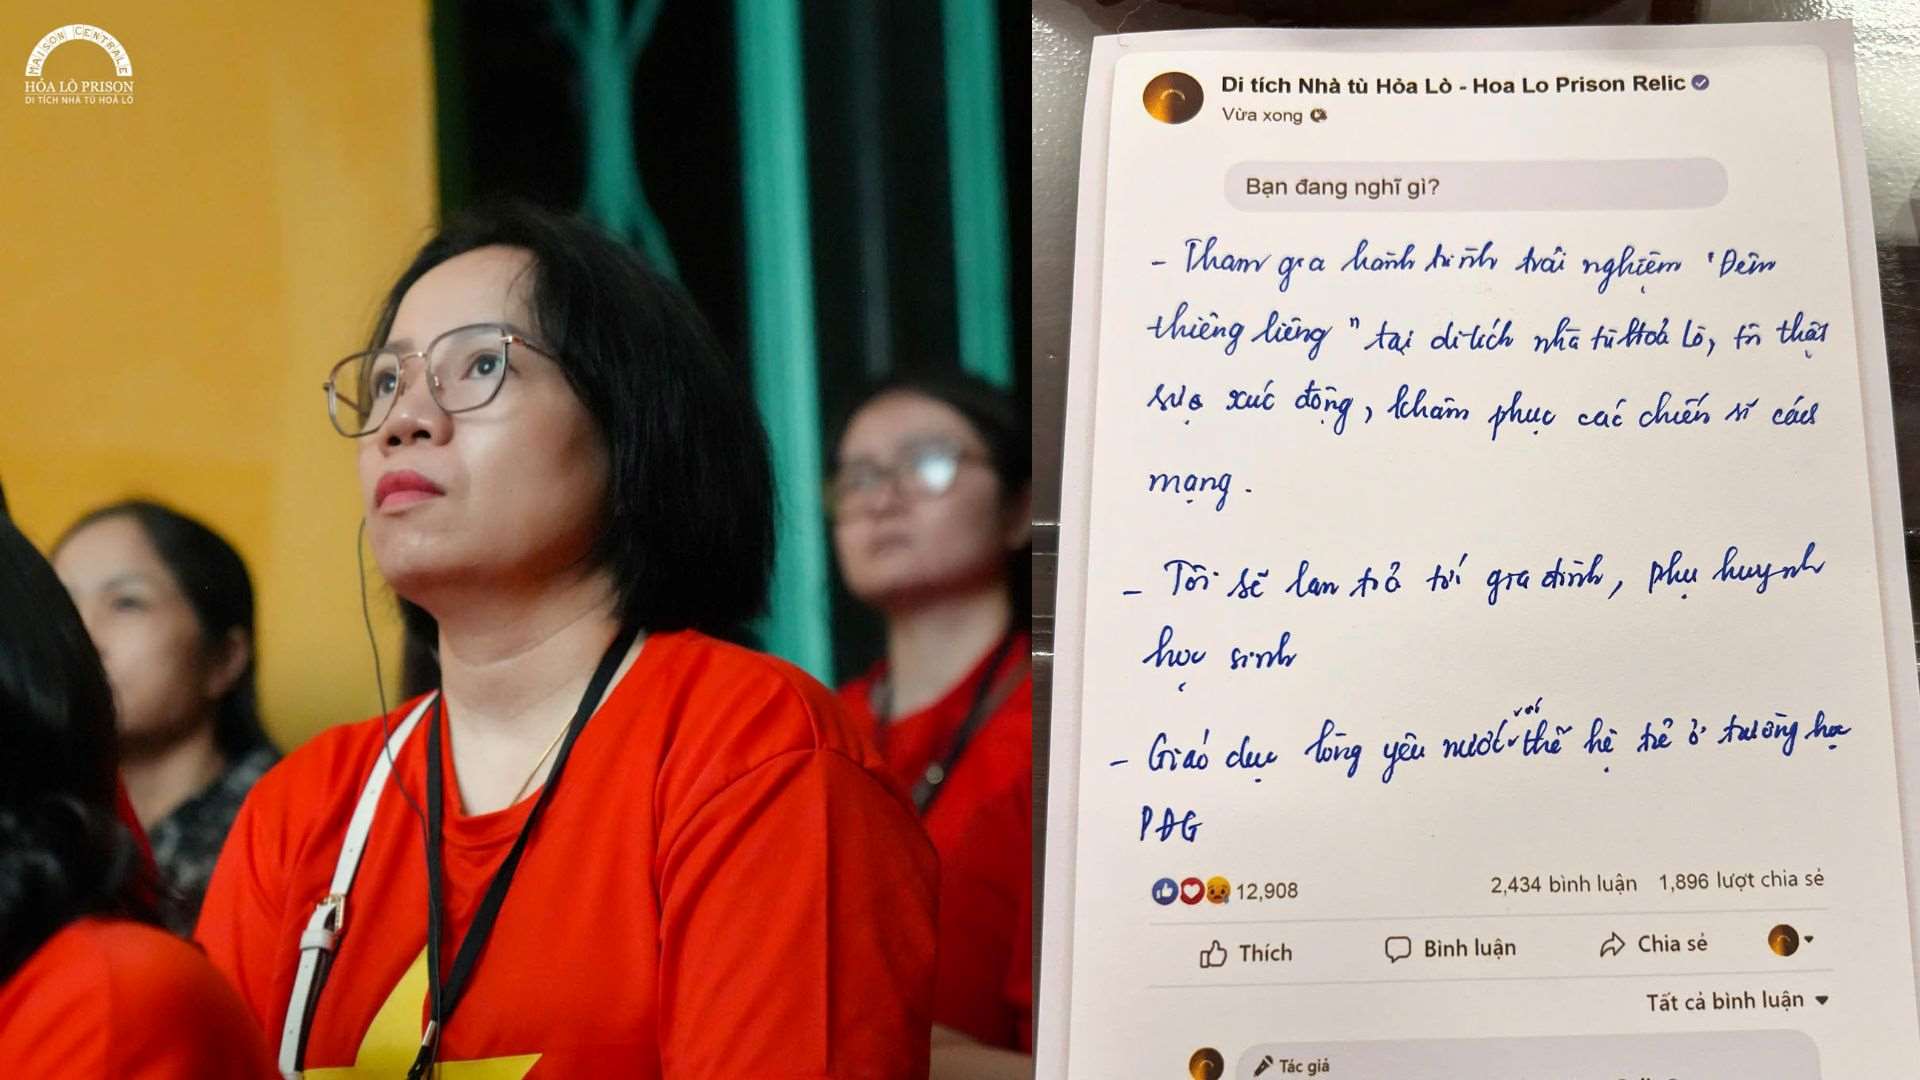 MAISON CENTRALE
HỎA LÒ PRISON
DI TÍCH NHÀ TÙ HOẢ LÒ
Di tích Nhà tù Hỏa Lò - Hoa Lo Prison Relic
Vừa xong
Bạn đang nghĩ gì?
- Tham gia hành trình trải nghiệm "Đêm
thiêng liêng" tại di tích nhà tù Hoả Lò, tôi thật
sự xúc động, khâm phục các chiến sĩ cách
mạng.
- Tôi sẽ lan toả tới gia đình, phụ huynh
học sinh
- Giáo dục lòng yêu nước với thế hệ trẻ ở trường học
PĐG
12,908 2,434 bình luận 1,896 lượt chia sẻ
Thích Bình luận Chia sẻ
Tất cả bình luận
Tác giả